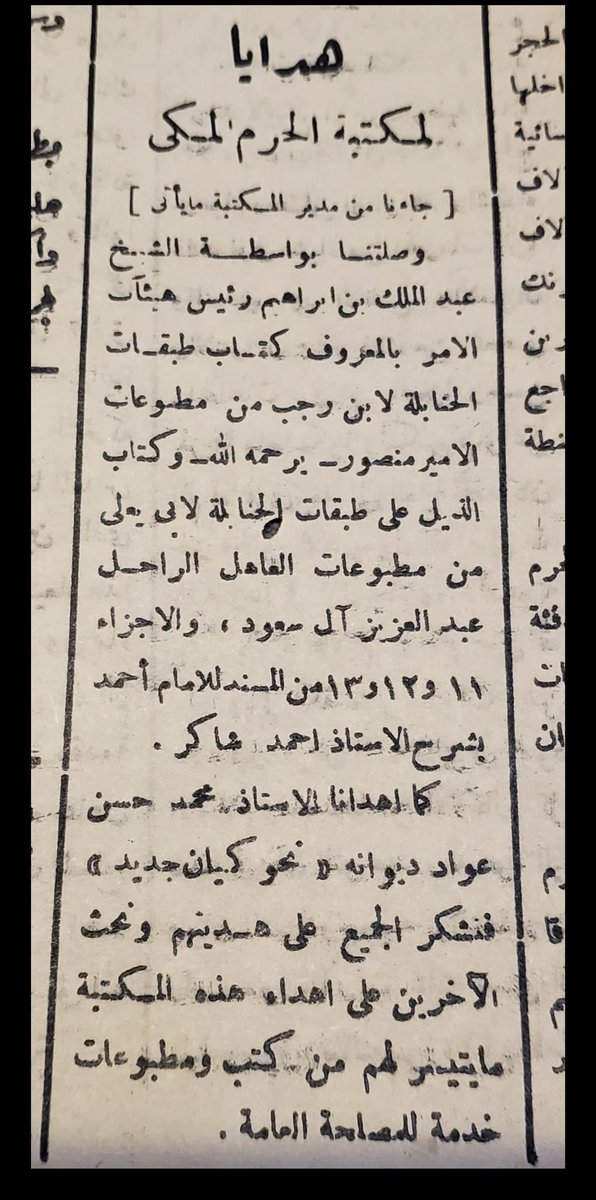 هدايا
لمكتبة الحرم المكى
[ جاءنا من مدير المكتبة مايأتى ]
وصلتنا بواسطة الشيخ
عبد الملك بن ابراهيم رئيس هيئآت
الامر بالمعروف كتاب طبقات
الحنابلة لابن رجب من مطبوعات
الامير منصور ـ يرحمه الله ـ وكتاب
الذيل على طبقات الحنابلة لابي يعلى
من مطبوعات العاهل الراحل
عبد العزيز آل سعود ، والاجزاء
١١ و١٢ و١٣ من المسند للامام أحمد
بشرح الاستاذ احمد شاكر .
كما اهدانا الاستاذ محمد حسن
عواد ديوانه « نحو كيان جديد »
فنشكر الجميع على هديتهم ونحث
الآخرين على اهداء هذه المكتبة
مايتيسر لهم من كتب ومطبوعات
خدمة للمصلحة العامة .